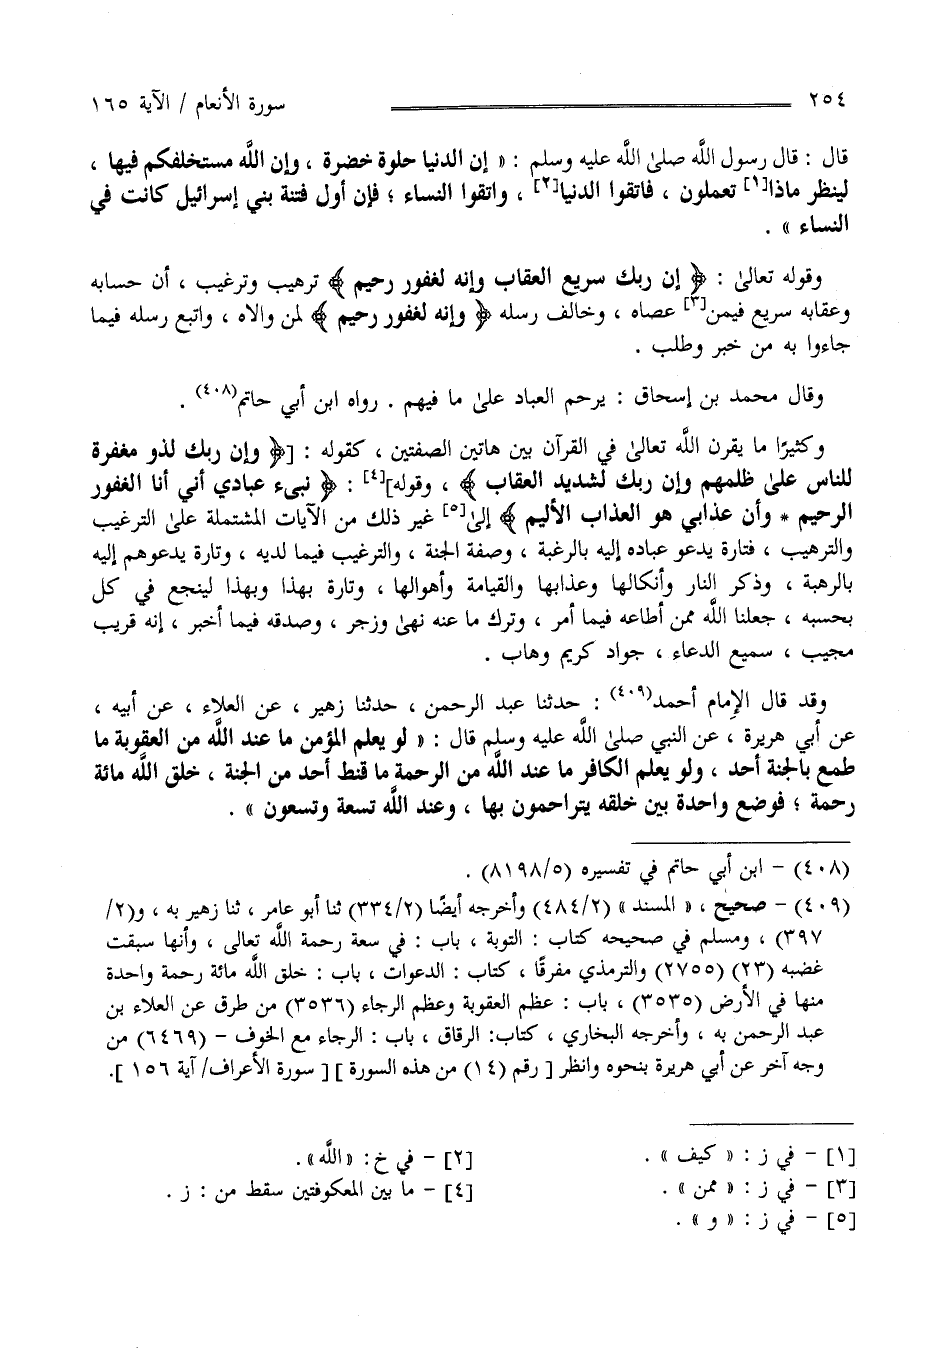 ٢٥٤ سورة الأنعام / الآية ١٦٥
قال : قال رسول اللَّه صلى اللَّه عليه وسلم : « إن الدنيا حلوة خضرة ، وإن اللَّه مستخلفكم فيها ،
لينظر ماذا[١] تعملون ، فاتقوا الدنيا[٢] ، واتقوا النساء ؛ فإن أول فتنة بني إسرائيل كانت في
النساء » .
وقوله تعالى : ﴿ إن ربك سريع العقاب وإنه لغفور رحيم ﴾ ترهيب وترغيب ، أن حسابه
وعقابه سريع فيمن[٣] عصاه ، وخالف رسله ﴿ وإنه لغفور رحيم ﴾ لمن والاه ، واتبع رسله فيما
جاءوا به من خبر وطلب .
وقال محمد بن إسحاق : يرحم العباد على ما فيهم . رواه ابن أبي حاتم(٤٠٨) .
وكثيرًا ما يقرن اللَّه تعالى في القرآن بين هاتين الصفتين ، كقوله : [﴿ وإن ربك لذو مغفرة
للناس على ظلمهم وإن ربك لشديد العقاب ﴾ ، وقوله][٤] : ﴿ نبىء عبادي أني أنا الغفور
الرحيم * وأن عذابي هو العذاب الأليم ﴾ إلى[٥] غير ذلك من الآيات المشتملة على الترغيب
والترهيب ، فتارة يدعو عباده إليه بالرغبة ، وصفة الجنة ، والترغيب فيما لديه ، وتارة يدعوهم إليه
بالرهبة ، وذكر النار وأنكالها وعذابها والقيامة وأهوالها ، وتارة بهذا وبهذا لينجع في كل
بحسبه ، جعلنا اللَّه ممن أطاعه فيما أمر ، وترك ما عنه نهى وزجر ، وصدقه فيما أخبر ، إنه قريب
مجيب ، سميع الدعاء ، جواد كريم وهاب .
وقد قال الإمام أحمد(٤٠٩) : حدثنا عبد الرحمن ، حدثنا زهير ، عن العلاء ، عن أبيه ،
عن أبي هريرة ، عن النبي صلى اللَّه عليه وسلم قال : « لو يعلم المؤمن ما عند اللَّه من العقوبة ما
طمع بالجنة أحد ، ولو يعلم الكافر ما عند اللَّه من الرحمة ما قنط أحد من الجنة ، خلق اللَّه مائة
رحمة ؛ فوضع واحدة بين خلقه يتراحمون بها ، وعند اللَّه تسعة وتسعون » .
(٤٠٨) – ابن أبي حاتم في تفسيره (٨١٩٨/٥) .
(٤٠٩) – صحيح ، « المسند » (٤٨٤/٢) وأخرجه أيضًا (٣٣٤/٢) ثنا أبو عامر ، ثنا زهير به ، و(٢/
٣٩٧) ، ومسلم في صحيحه كتاب : التوبة ، باب : في سعة رحمة اللَّه تعالى ، وأنها سبقت
غضبه (٢٣) (٢٧٥٥) والترمذي مفرقًا ، كتاب : الدعوات ، باب : خلق اللَّه مائة رحمة واحدة
منها في الأرض (٣٥٣٥) ، باب : عظم العقوبة وعظم الرجاء (٣٥٣٦) من طرق عن العلاء بن
عبد الرحمن به ، وأخرجه البخاري ، كتاب: الرقاق ، باب : الرجاء مع الخوف – (٦٤٦٩) من
وجه آخر عن أبي هريرة بنحوه وانظر [ رقم (١٤) من هذه السورة ] [ سورة الأعراف/ آية ١٥٦ ].
[١] – في ز : « كيف » . [٢] – في خ : «اللَّه».
[٣] – في ز : « ممن » . [٤] – ما بين المعكوفتين سقط من : ز .
[٥] – في ز : « و » .